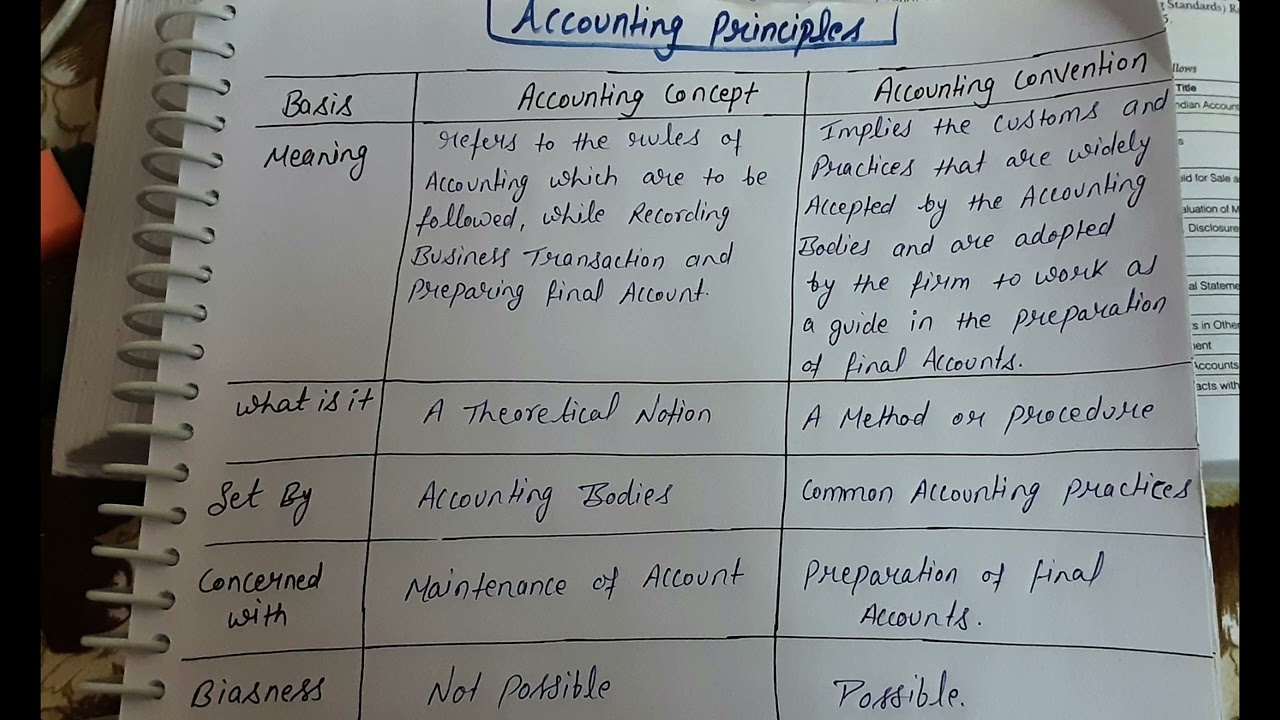 Accounting Principles
Basis
Accounting Concept
Accounting Convention
Meaning
refers to the rules of
Accounting which are to be
followed, while Recording
Business Transaction and
preparing final Account.
Implies the customs and
Practices that are widely
Accepted by the Accounting
Bodies and are adopted
by the firm to work as
a guide in the preparation
of final Accounts.
What is it
A Theoretical Notion
A Method or procedure
Set By
Accounting Bodies
Common Accounting practices
Concerned
with
Maintenance of Account
Preparation of final
Accounts.
Biasness
Not possible
Possible.
Standards)
Title
Disclosure
Accounts